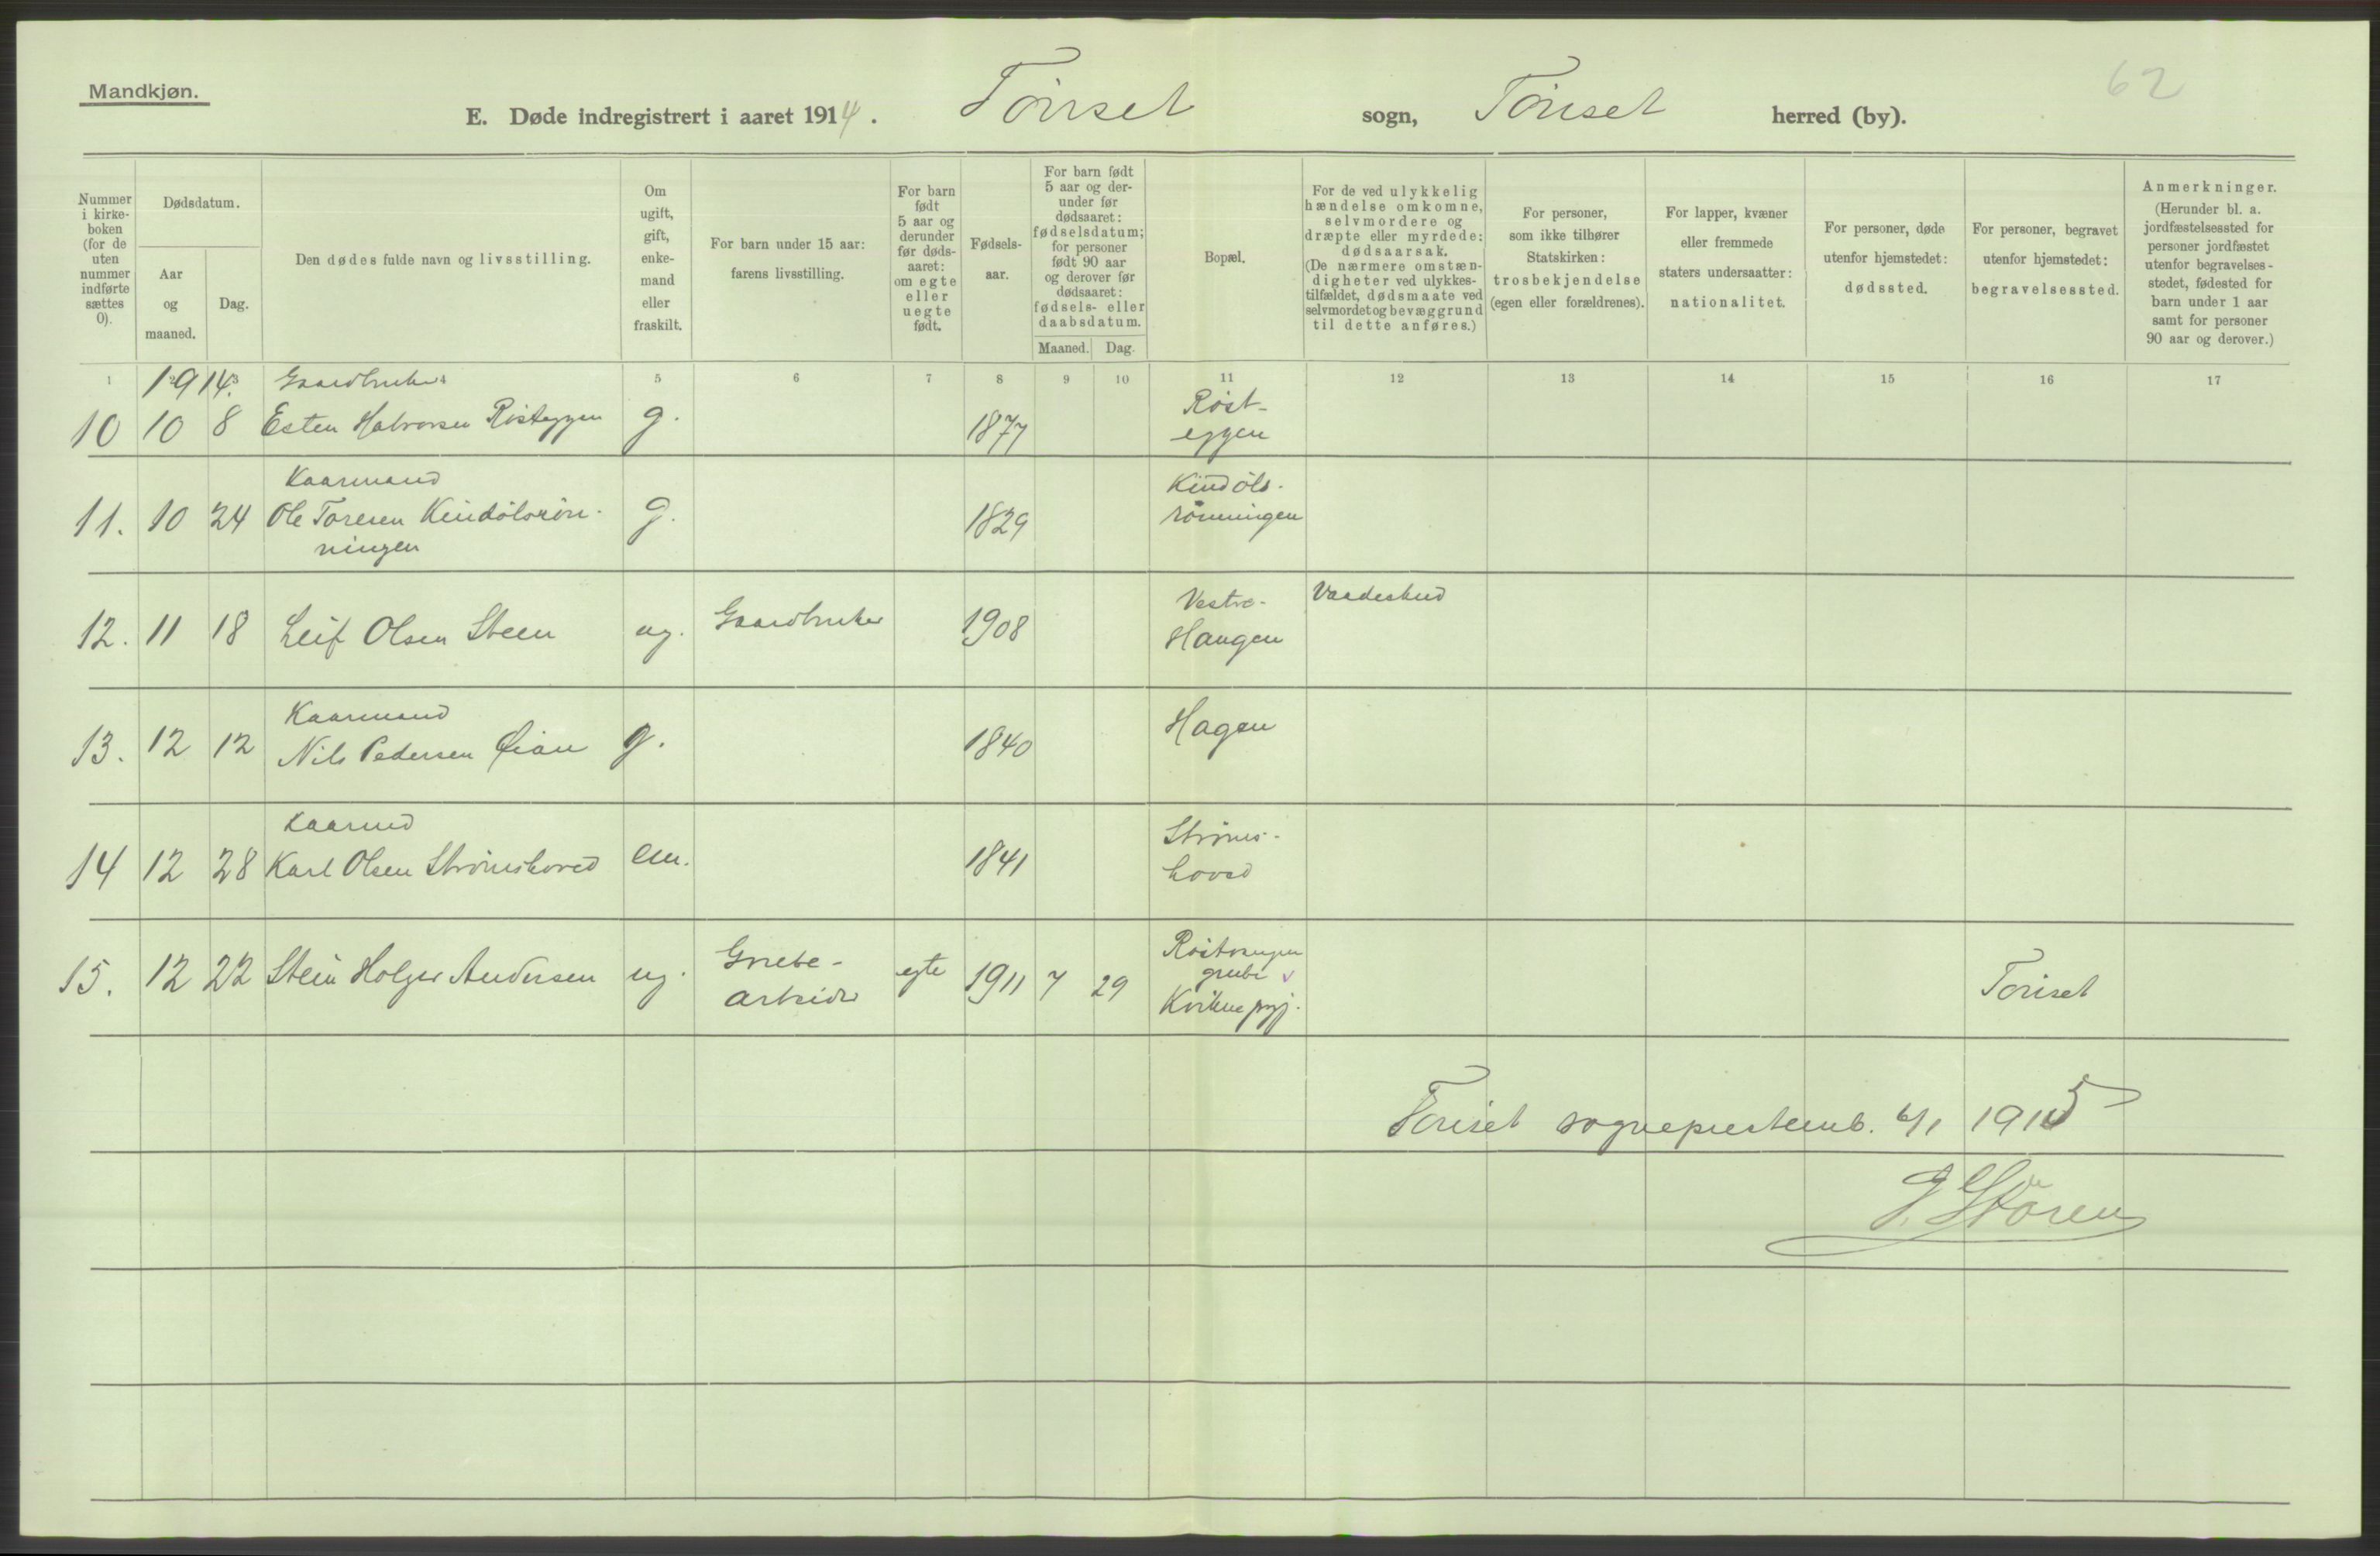 Mandkjøn.
62
E. Døde indregistrert i aaret 1914. Tönset sogn, Tönset herred (by).
Nummer i kirke- boken (for de uten nummer indførte sættes 0).
Dødsdatum.
Aar og maaned.
Dag.
Den dødes fulde navn og livsstilling.
Om ugift, gift, enke- mand eller fraskilt.
For barn under 15 aar: farens livsstilling.
For barn født 5 aar og derunder før døds- aaret: om egte eller uegte født.
Fødsels- aar.
For barn født 5 aar og der- under før dødsaaret: fødselsdatum; for personer født 90 aar og derover før dødsaaret: fødsels- eller daabsdatum.
Maaned. Dag.
Bopæl.
For de ved ulykkelig hændelse omkomne, selvmordere og dræpte eller myrdede: dødsaarsak. (De nærmere omstæn- digheter ved ulykkes- tilfældet, dødsmaate ved selvmordet og bevæggrund til dette anføres.)
For personer, som ikke tilhører Statskirken: trosbekjendelse (egen eller forældrenes).
For lapper, kvæner eller fremmede staters undersaatter: nationalitet.
For personer, døde utenfor hjemstedet: dødssted.
For personer, begravet utenfor hjemstedet: begravelsessted.
Anmerkninger. (Herunder bl. a. jordfæstelsessted for personer jordfæstet utenfor begravelses- stedet, fødested for barn under 1 aar samt for personer 90 aar og derover.)
1 2 3 4 5 6 7 8 9 10 11 12 13 14 15 16 17
1914. Gaardbruker
10 10 8 Esten Halvorsen Rösteggen g. 1877 Röst- eggen
Kaarmand
11. 10 24 Ole Toresen Kindölsrön- ningen g. 1829 Kindöls- rönningen
12. 11 18 Leif Olsen Steen ug. Gaardbruker 1908 Vestre- Haugen Vaadeskud
Kaarmand
13. 12 12 Nils Pedersen Øian g. 1840 Hagen
Kaarmd
14 12 28 Karl Olsen Strömshoved em. 1841 Ströms- hoved
15. 12 22 Stein Holger Andersen ug. Grube- arbeider egte 1911 7 29 grube Kvikne prgj. Tönset
Tönset sogneprestemb. 6/1 1915
J. Stören